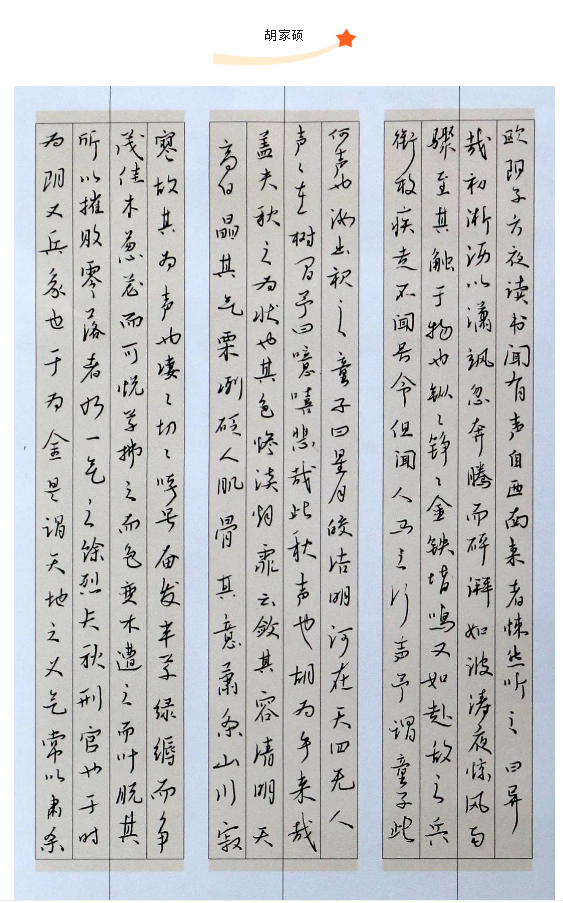 胡家硕
欧阳子方夜读书闻有声自西南来者悚然听之曰异
哉初淅沥以潇飒忽奔腾而砰湃如波涛夜惊风雨
骤至其触于物也鏦〻铮〻金铁皆鸣又如赴敌之兵
衔枚疾走不闻号令但闻人马之行声予谓童子此
何声也汝出视之童子曰星月皎洁明河在天四无人
声〻在树间予曰噫嘻悲哉此秋声也胡为乎来哉
盖夫秋之为状也其色惨淡烟霏云敛其容清明天
高日晶其气栗冽砭人肌骨其意萧条山川寂
寥故其为声也凄〻切〻呼号奋发丰草绿缛而争
茂佳木葱茏而可悦草拂之而色变木遭之而叶脱其
所以摧败零落者乃一气之馀烈夫秋刑官也于时
为阴又兵象也于为金是谓天地之义气常以肃杀